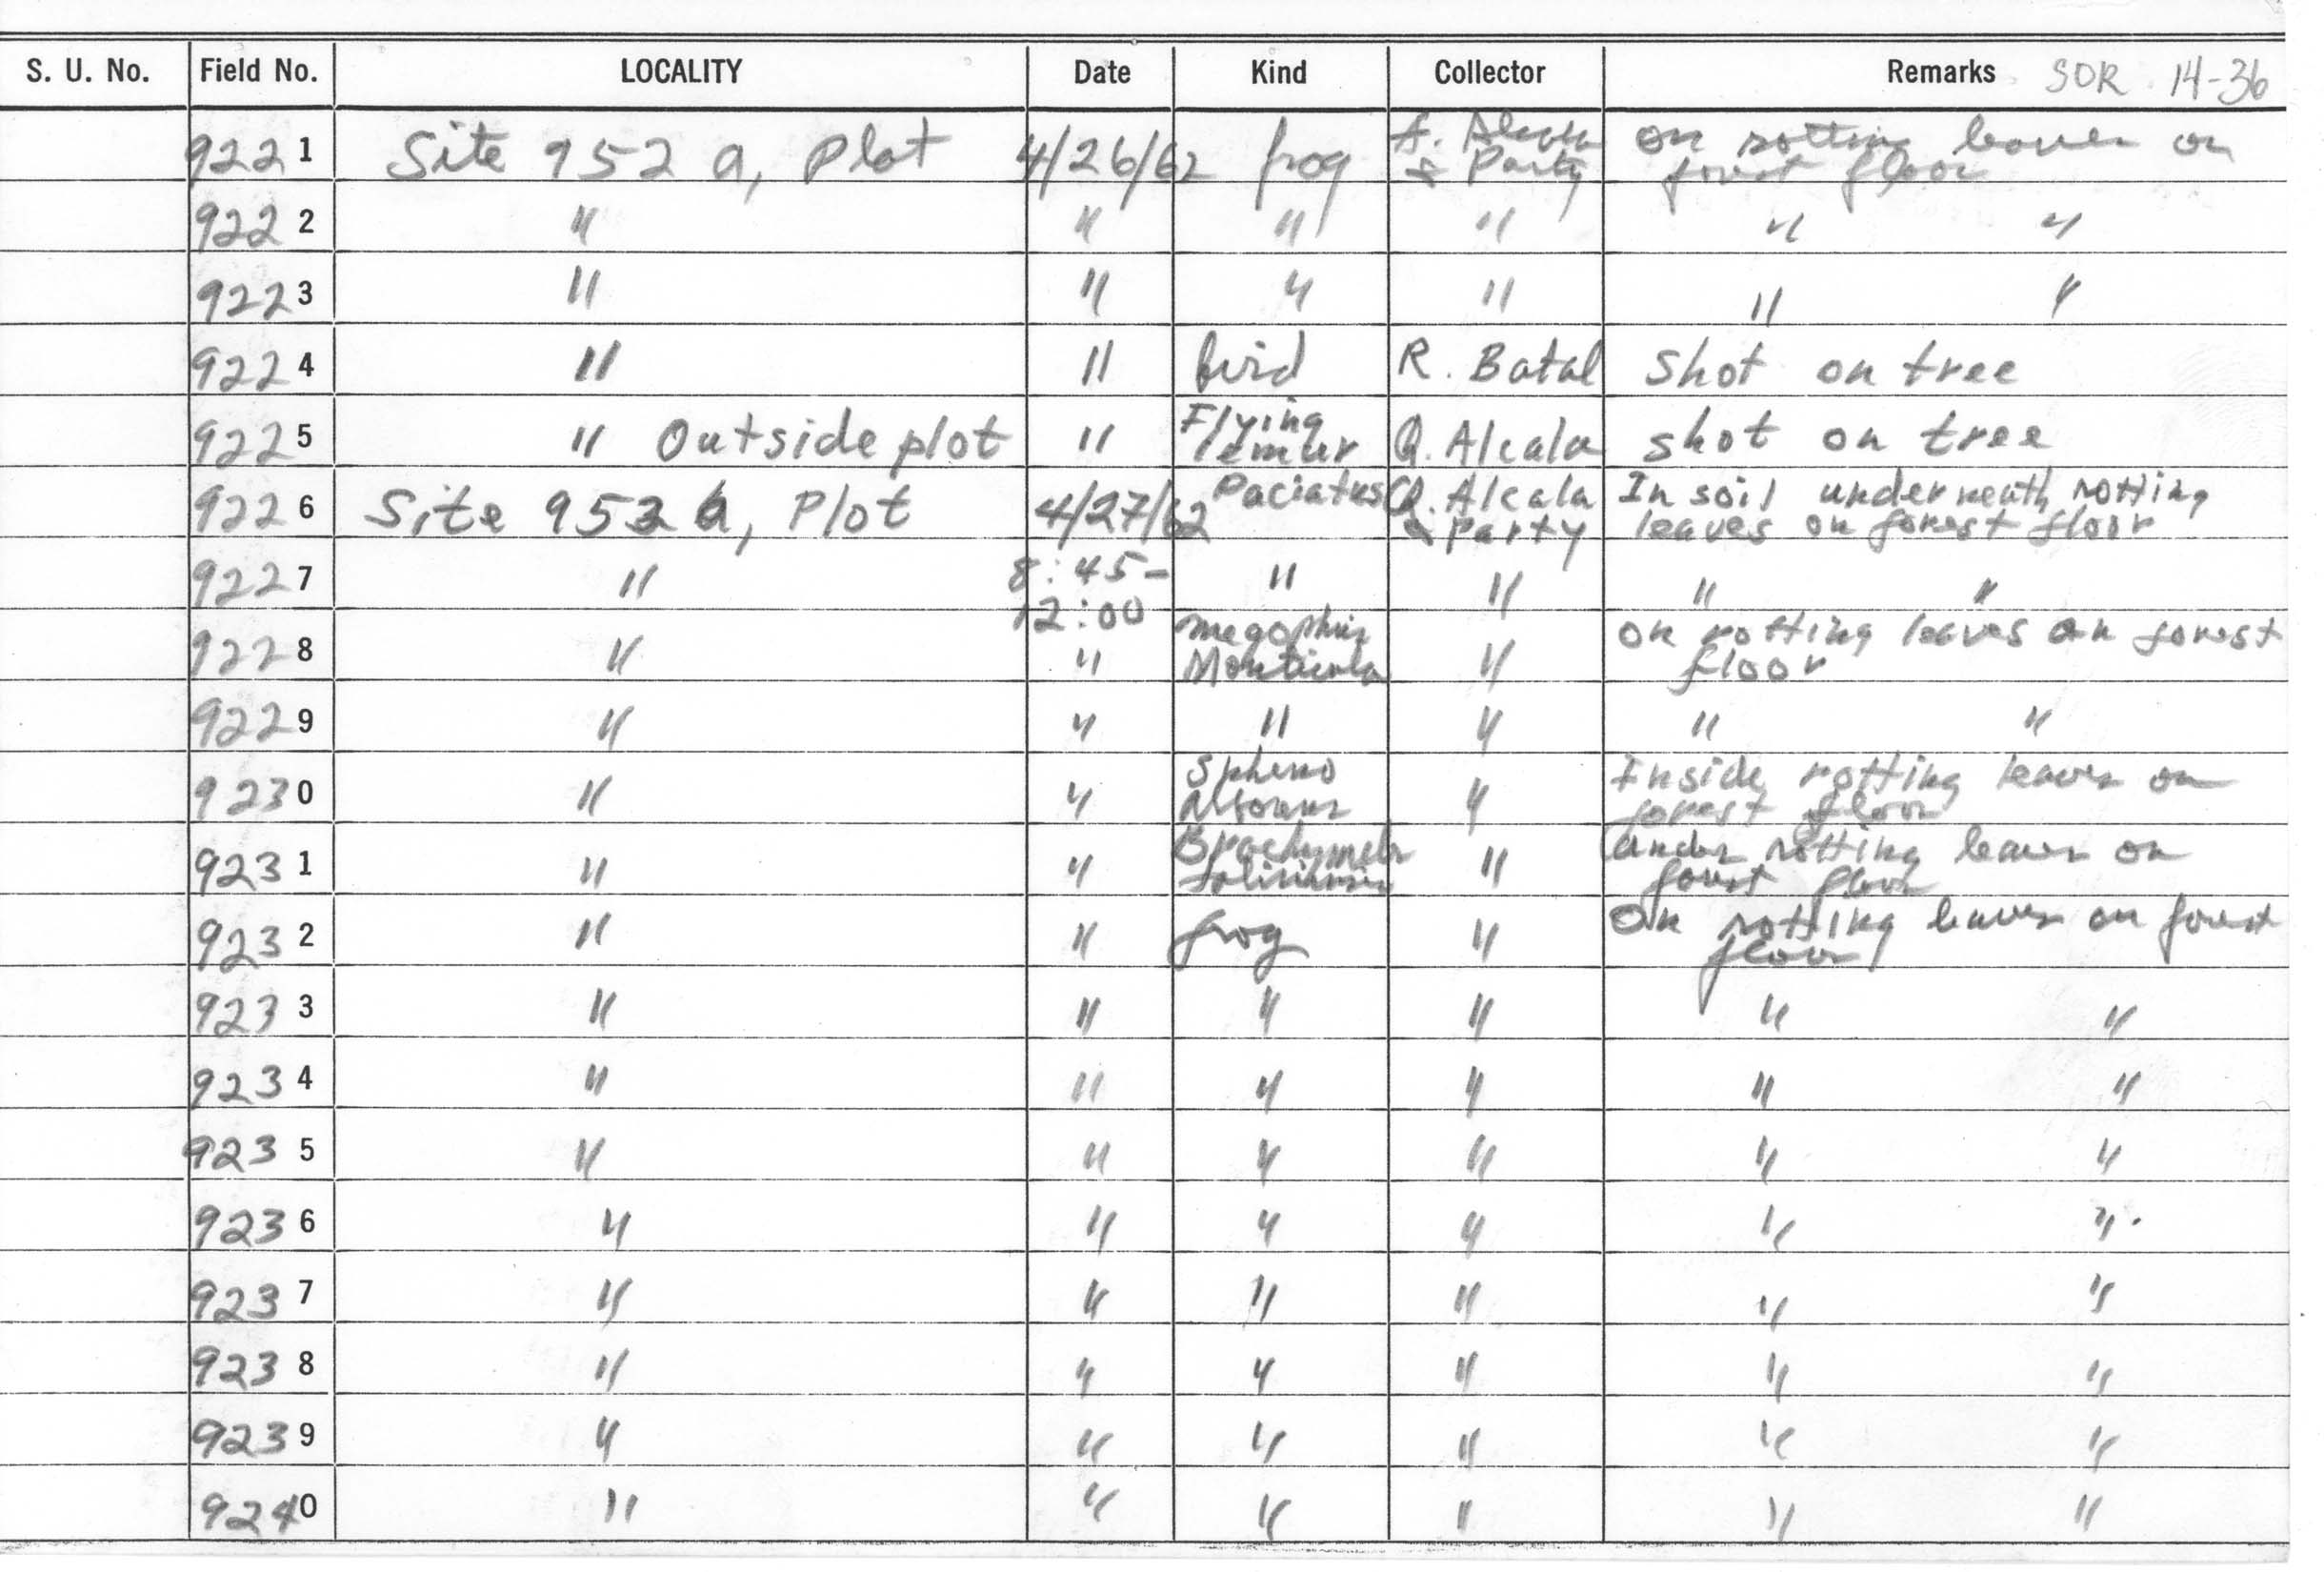 S. U. No. Field No. LOCALITY Date Kind Collector Remarks SOR 14-36
9221 Site 952 a, Plot 4/26/62 frog A. Alcala & Party on rotting leaves on forest floor
9222 " " " " " "
9223 " " " " " "
9224 " " bird R. Batal Shot on tree
9225 " Outside plot " Flying lemur Q. Alcala shot on tree
9226 Site 952 a, Plot 4/27/62 Paciatus Q. Alcala & Party In soil underneath rotting leaves on forest floor
9227 " 8:45-12:00 " " " "
9228 " " megophris Monticola " on rotting leaves on forest floor
9229 " " " " " "
9230 " " Spheno " Inside rotting leaves on forest floor
9231 " " Brachymeles " under rotting leaves on forest floor
9232 " " frog " On rotting leaves on forest floor
9233 " " " " " "
9234 " " " " " "
9235 " " " " " "
9236 " " " " " "
9237 " " " " " "
9238 " " " " " "
9239 " " " " " "
9240 " " " " " "